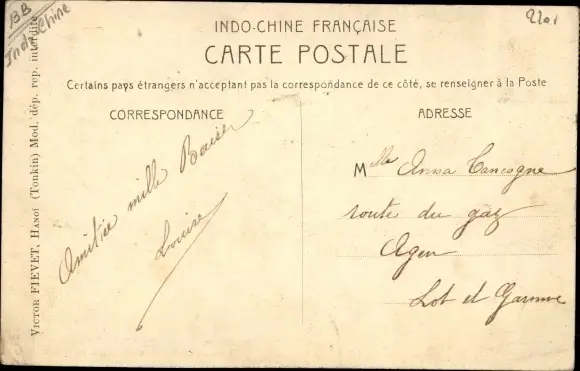 BB
Indo Chine
2201
INDO-CHINE FRANÇAISE
CARTE POSTALE
Certains pays étrangers n'acceptant pas la correspondance de ce côté, se renseigner à la Poste
CORRESPONDANCE
Amitiee mille Baiser
Louise
ADRESSE
Mlle Anna Cancogne
route du gaz
Agen
Lot et Garonne
VICTOR FIEVET, HANOÏ (Tonkin) Mod. dép. rep. interdite